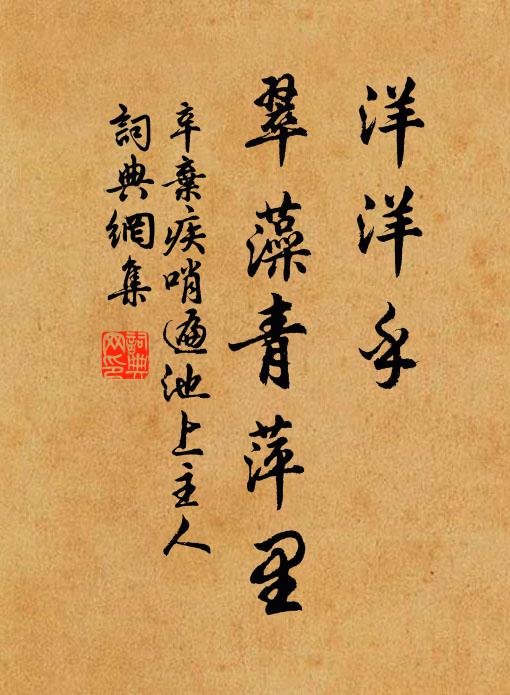 洋洋乎
翠藻青萍里
辛棄疾哨遍池上主人
詞典網集
詞典
网印